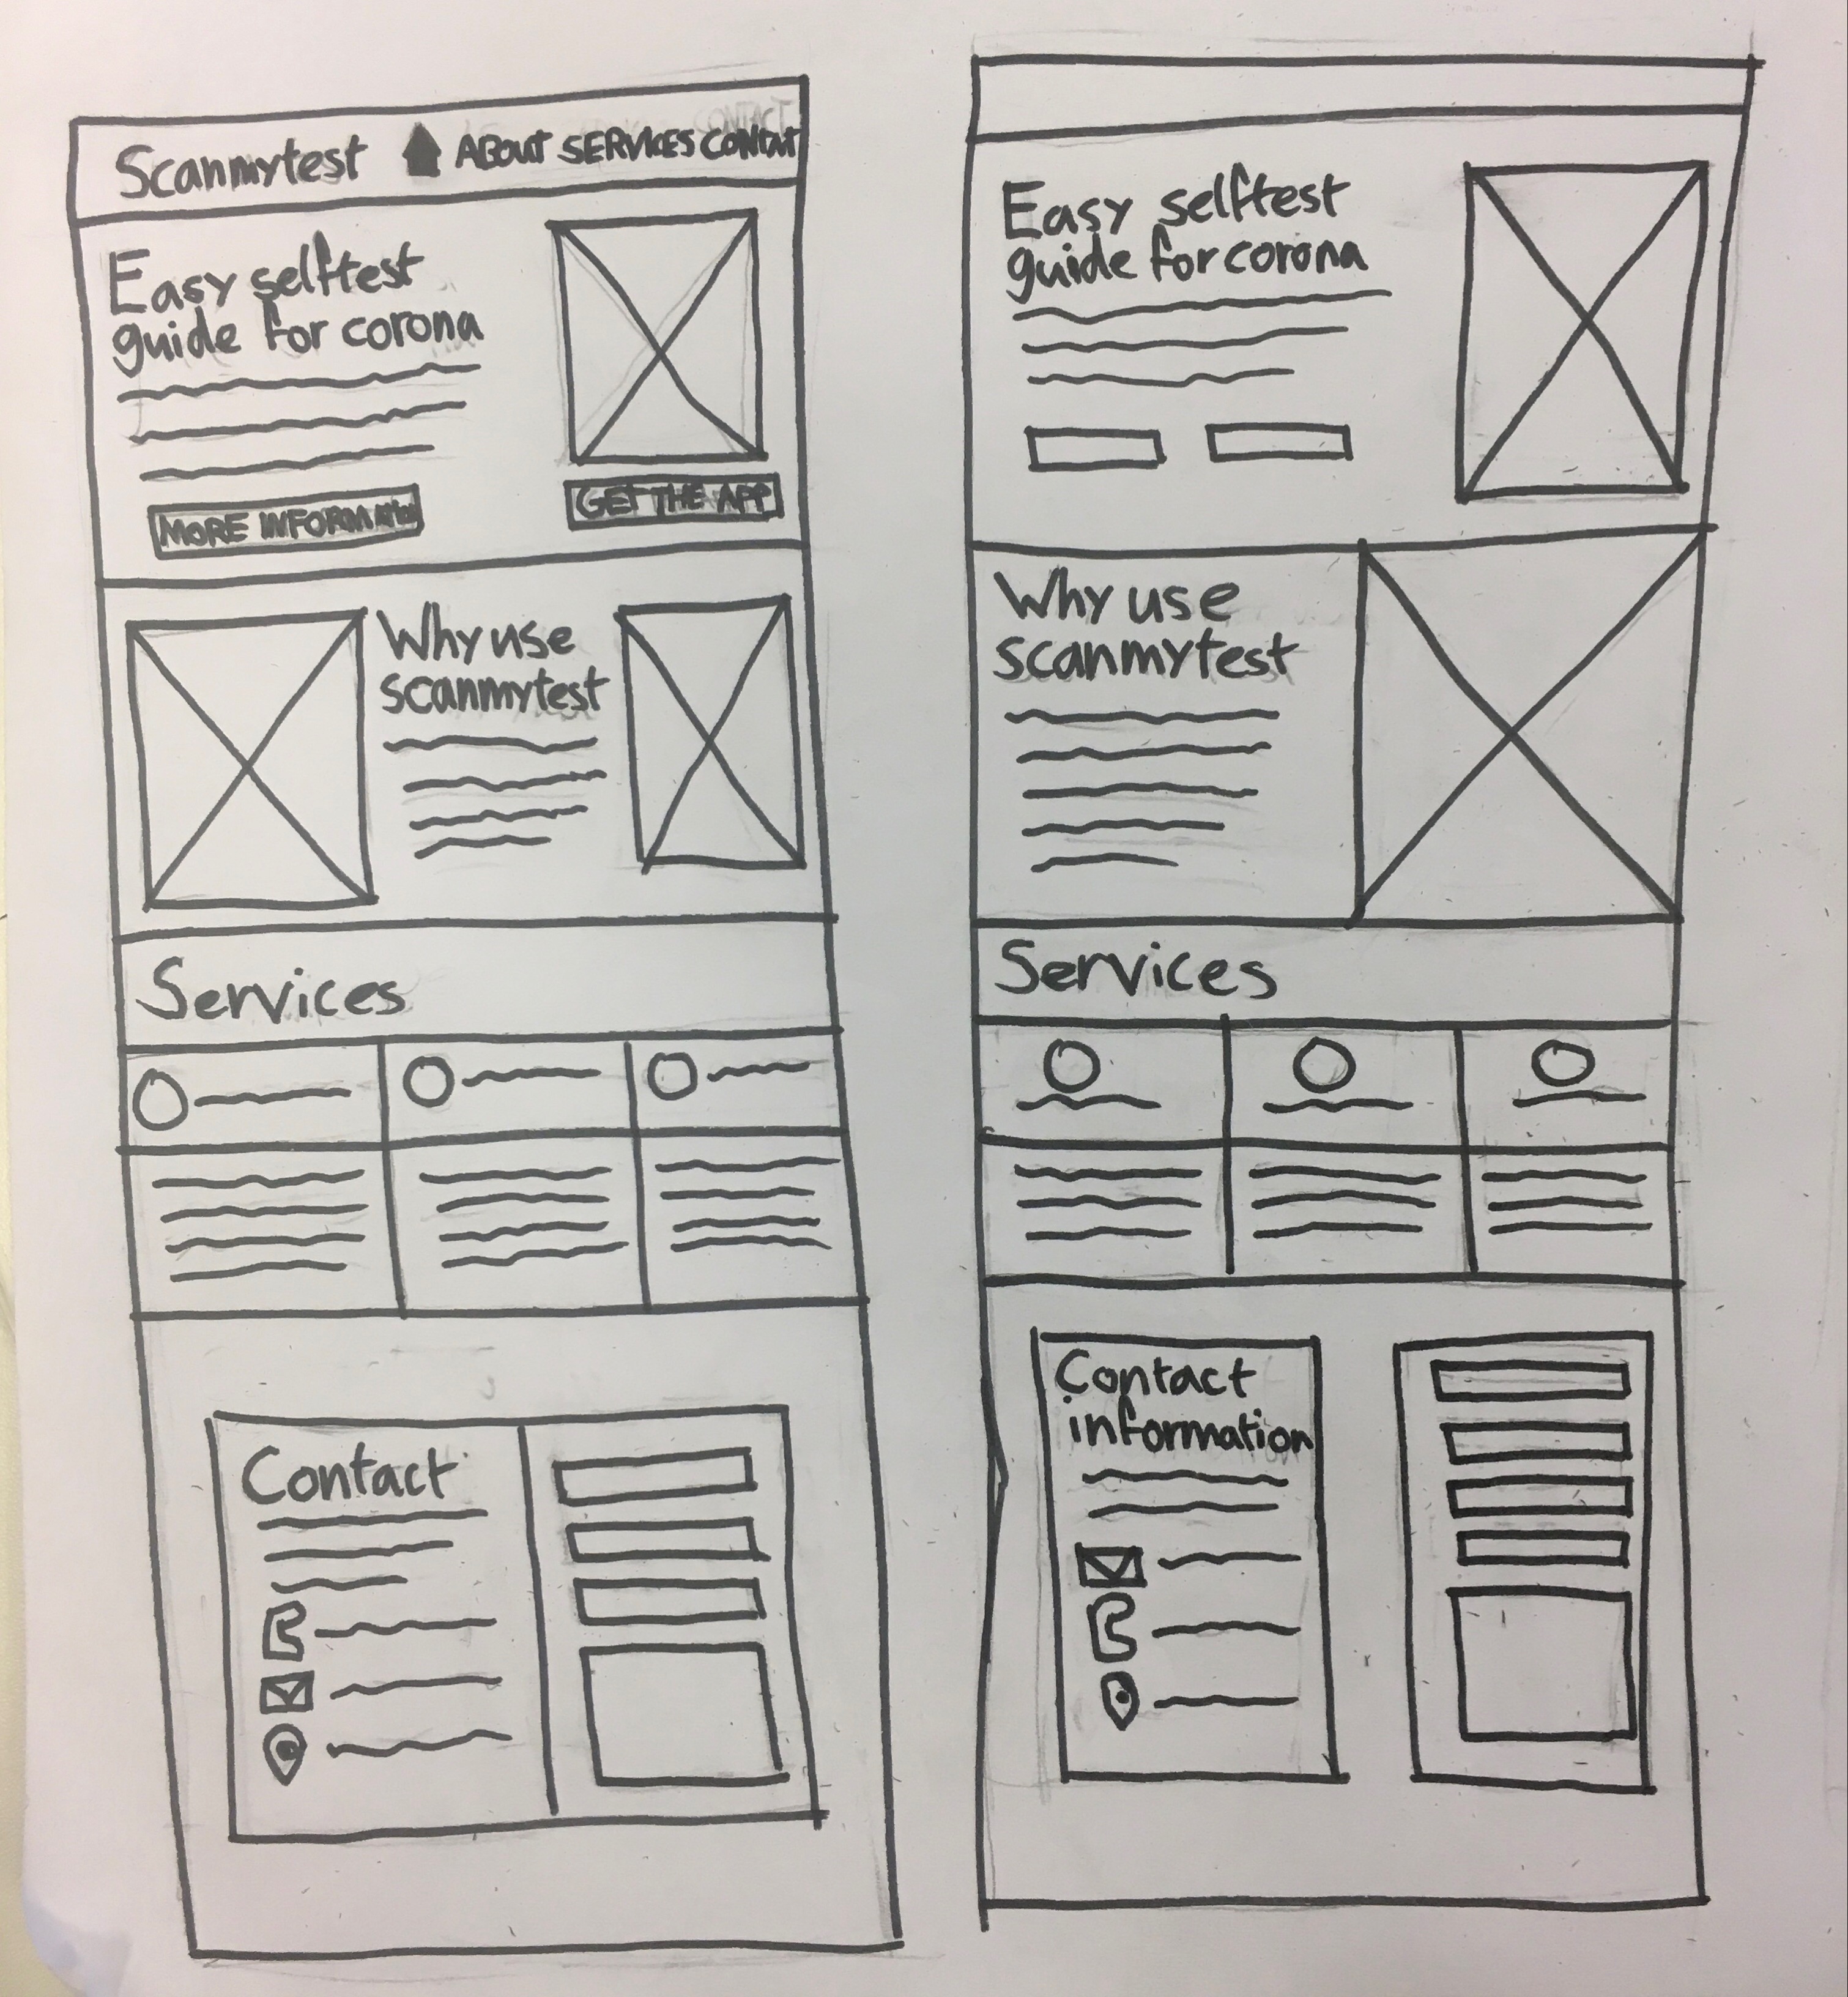 Scanmytest ABOUT SERVICES CONTACT
Easy selftest
guide for corona
MORE INFORMATION
GET THE APP
Why use
scanmytest
Services
Contact
Easy selftest
guide for corona
Why use
scanmytest
Services
Contact
information